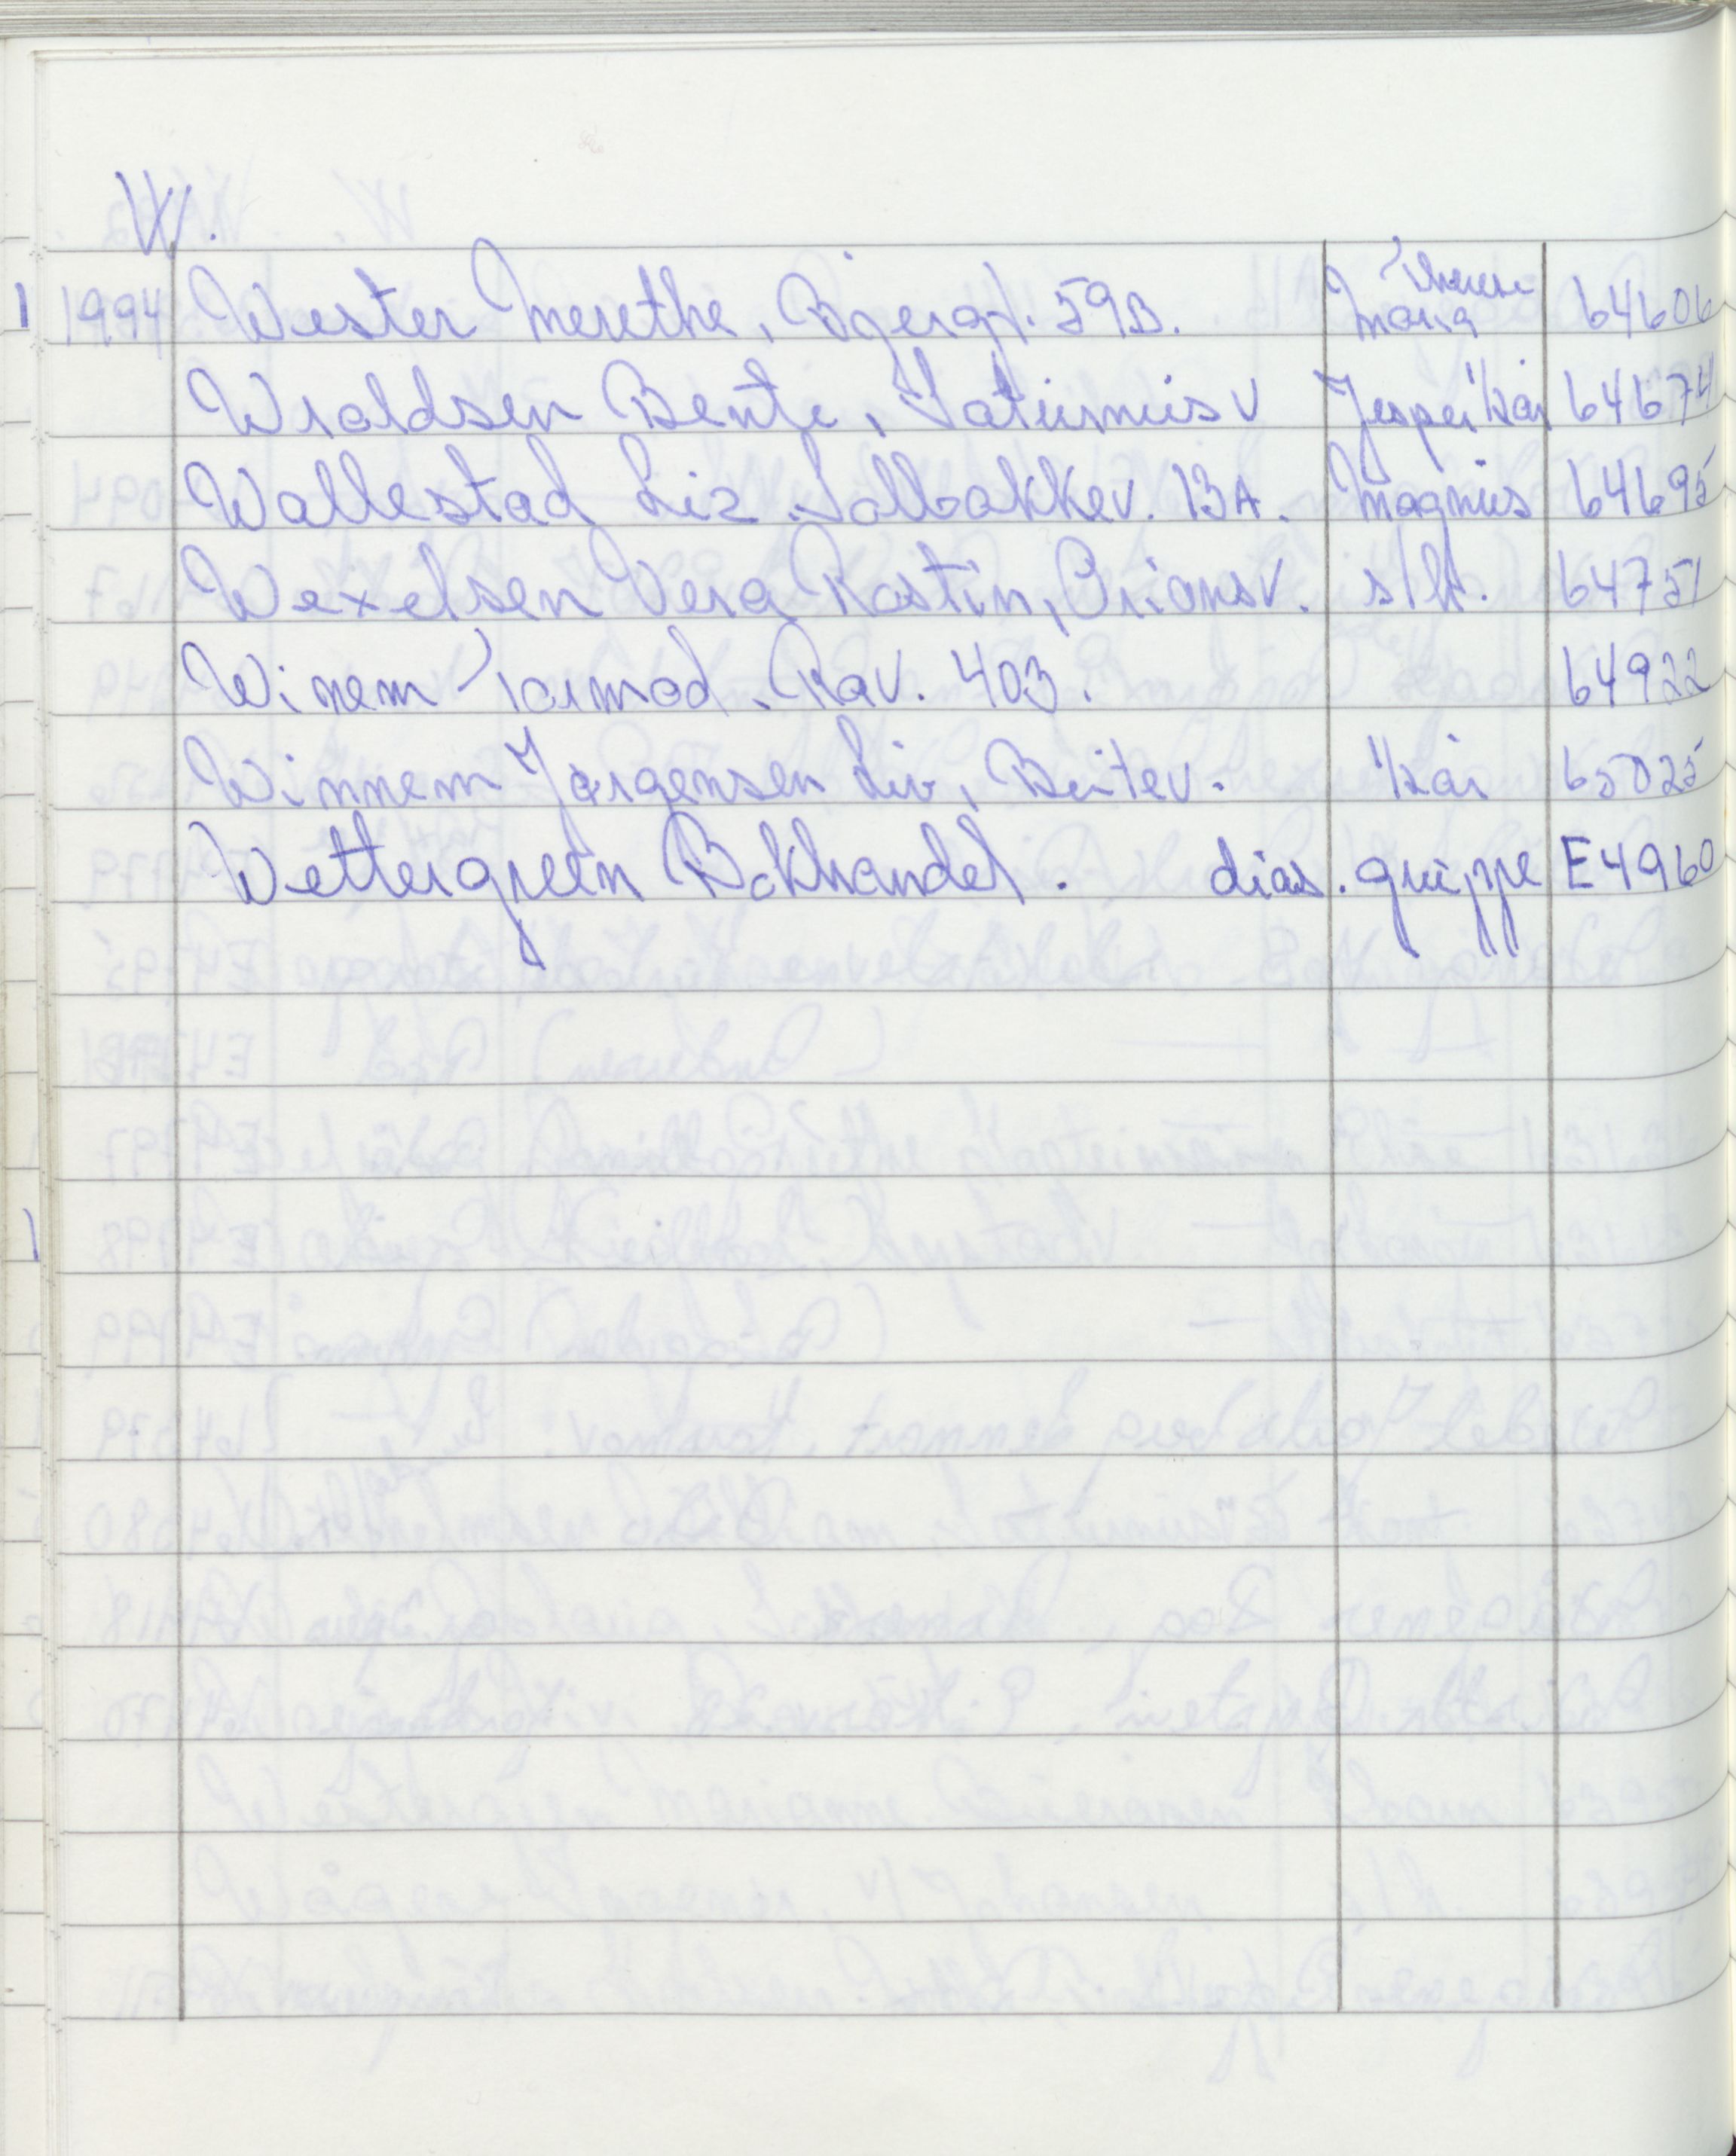 W.
1994 Wester Merethe, Bjergg. 59B. Therese Maria 64606
Wroldsen Bente, Saturnusv Jesper Kai 64674
Wallestad Liz. Solbakkev. 13A. Magnus 64695
Wexelsen Vera Rostin, Orionsv. s/h. 64751
Winem Tormod. Rav. 403. 64922
Winnem Jørgensen Liv, Beitev. Kai 65025
Wettergreen Bokhandel. dias. gruppe E4960